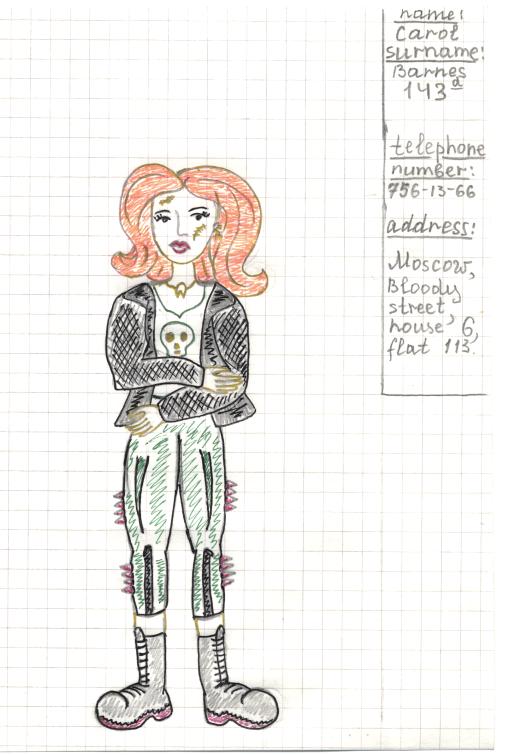 name:
Carol
surname:
Barnes
143a
telephone
number:
756-13-66
address:
Moscow,
Bloody
street,
house 6,
flat 113.